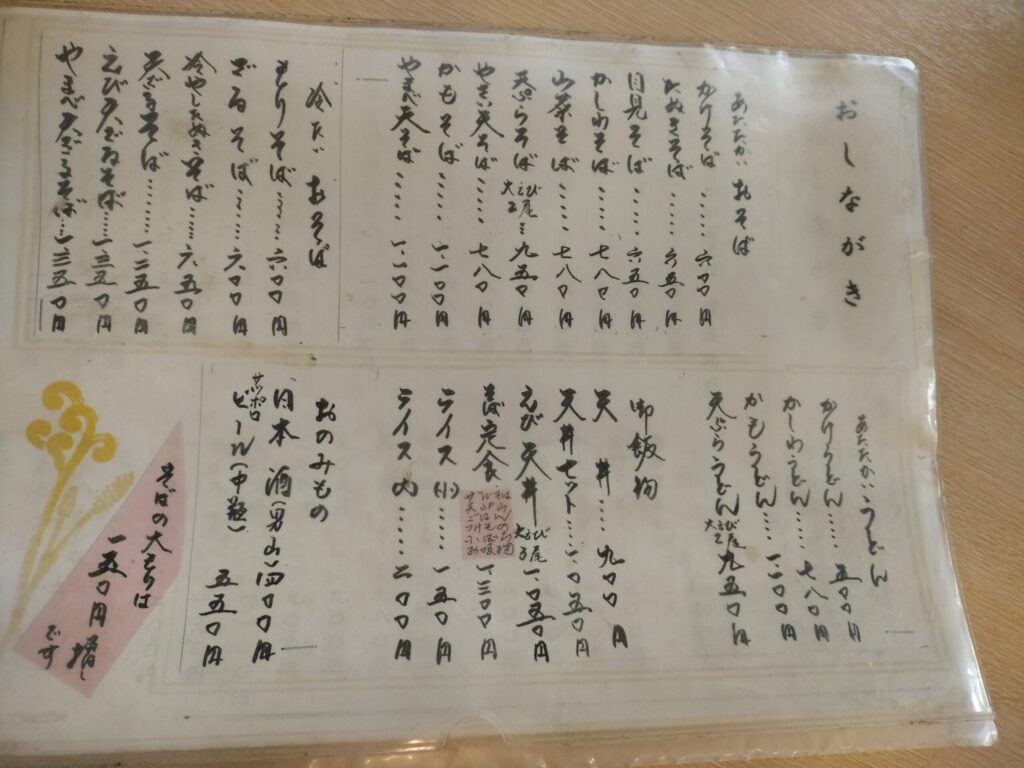 おしながき
あたたかいおそば
かけそば……六〇〇円
たぬきそば……六五〇円
月見そば……六五〇円
かしわそば……七八〇円
山菜そば……七八〇円
天ぷらそば えび尾 大2…九五〇円
やさい天そば……七八〇円
かもそば……一.一〇〇円
やまべ天そば……一.一〇〇円
冷たいおそば
もりそば……六〇〇円
ざるそば……六〇〇円
冷やしたぬきそば……六五〇円
天ざるそば……一二五〇円
えび天ざるそば……一三五〇円
やまべ天ざるそば…一三五〇円
あたたかいうどん
かけうどん……五〇〇円
かしわうどん……七八〇円
かもうどん……一.一〇〇円
天ぷらうどん えび尾 大2 九五〇円
御飯物
天丼……九〇〇円
天丼セット……一.〇五〇円
えび天丼 えび尾 大3 一.〇五〇円
そば定食 一.三〇〇円
ライス(小)……一五〇円
ライス(大)……二〇〇円
おのみもの
日本酒(男山)四〇〇円
サッポロ
ビール(中瓶) 五五〇円
そばの大もりは
一五〇円増し
です